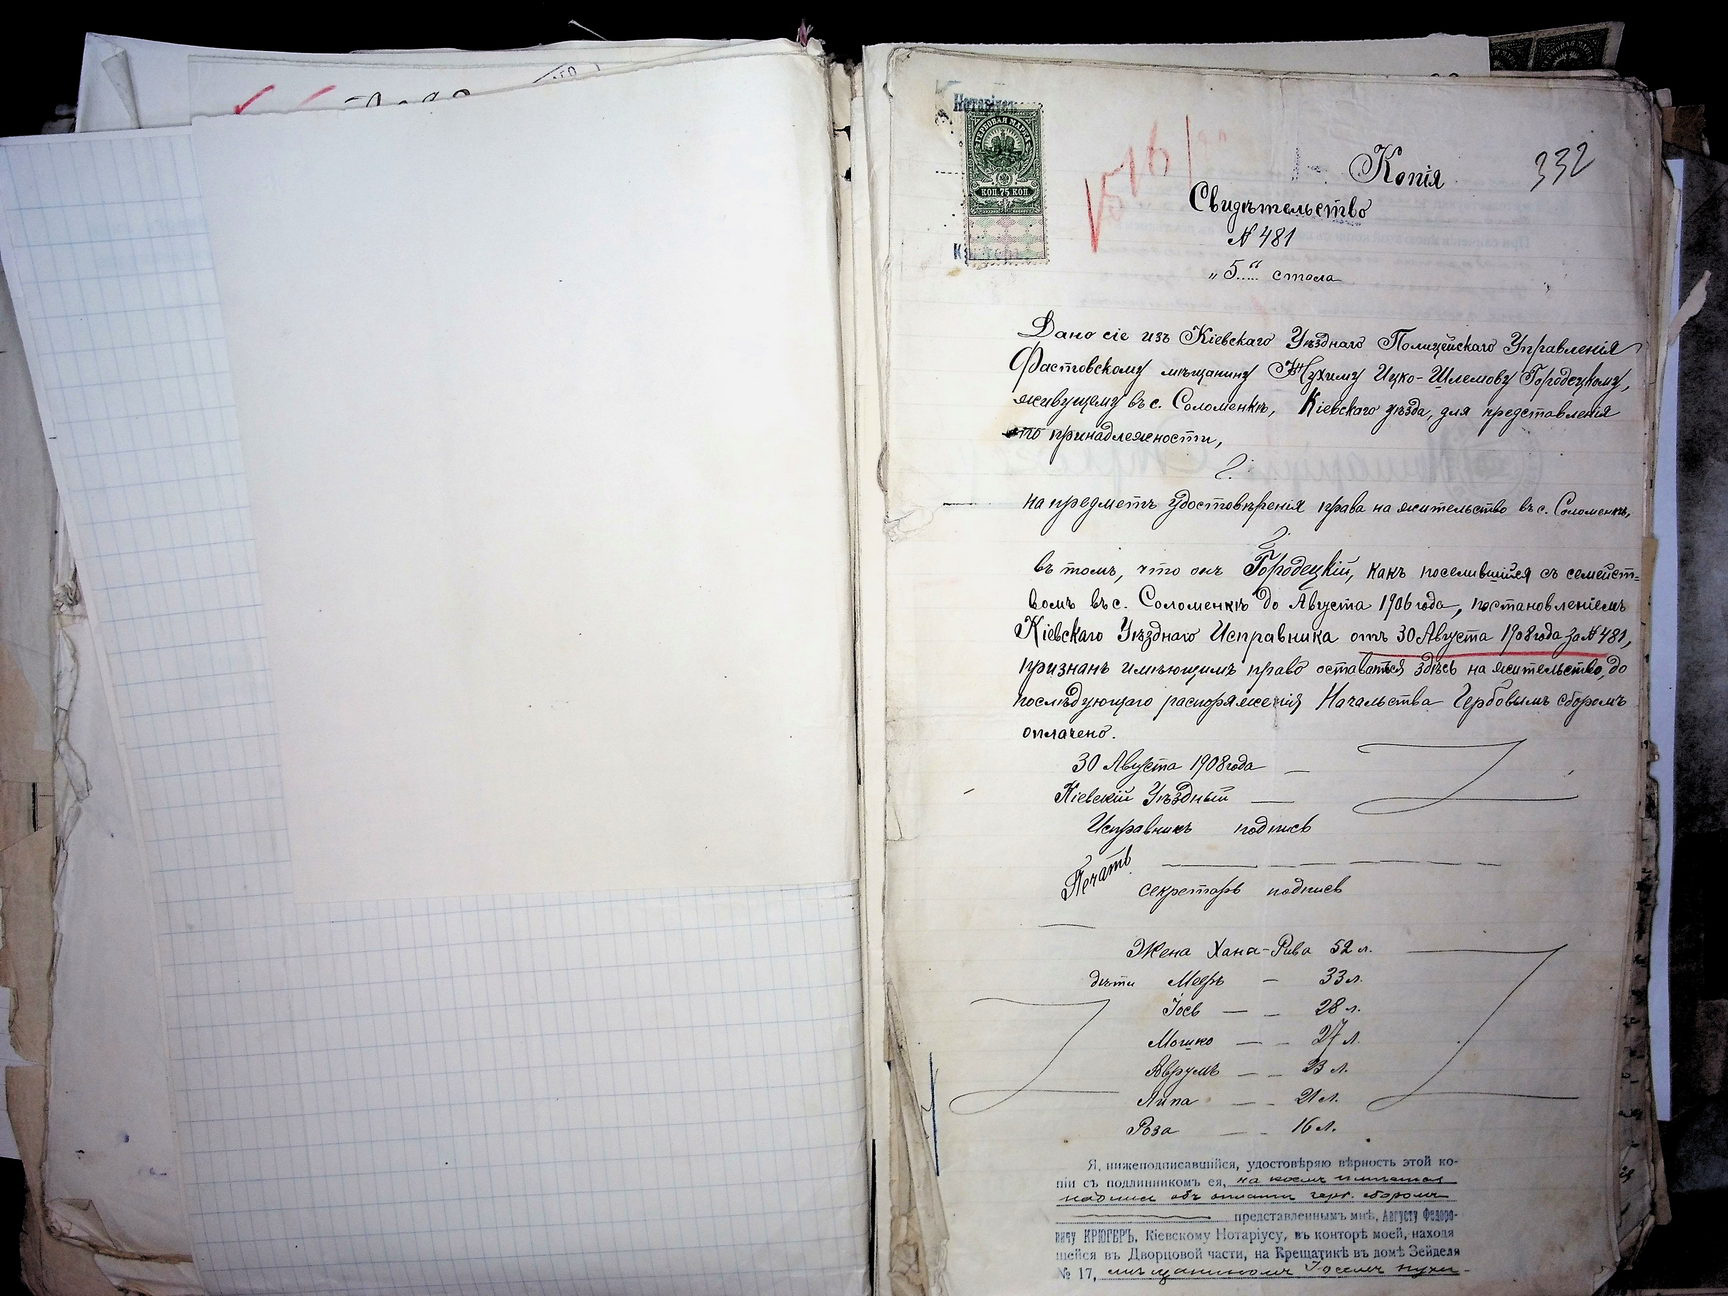 Нотаріусъ
ГЕРБОВАЯ МАРКА
КОП. 75 КОП.
Копія
332
Свидѣтельство
№ 481
„5“ стола
Дано сіе изъ Кіевскаго Уѣзднаго Полицейскаго Управленія
Фастовскому мѣщанину Нухиму Ицко-Шлемову Городецкому,
живущему въ с. Соломенкѣ, Кіевскаго уѣзда, для представленія
по принадлежности,
на предметъ удостовѣренія права на жительство въ с. Соломенкѣ,
въ томъ, что онъ Городецкій, какъ поселившійся съ семейст-
вомъ въ с. Соломенкѣ до Августа 1906 года, постановленіемъ
Кіевскаго Уѣзднаго Исправника отъ 30 Августа 1908 года за № 481,
признанъ имѣющимъ право оставаться здѣсь на жительство, до
послѣдующаго распоряженія Начальства Гербовымъ сборомъ
оплачено.
30 Августа 1908 года
Кіевскій Уѣздный
Исправникъ подпись
Печать
секретарь подпись
Жена Хана-Рива 52 л.
дѣти Мееръ — 33 л.
Іось — 28 л.
Мошко — 27 л.
Аврумъ — 23 л.
Липа — 21 л.
Роза — 16 л.
Я, нижеподписавшійся, удостовѣряю вѣрность этой ко-
піи съ подлинникомъ ея, на коемъ имѣется
надпись объ оплатѣ герб. сборомъ
представленнымъ мнѣ, Августу Федоро-
вичу КРЮГЕРЪ, Кіевскому Нотаріусу, въ конторѣ моей, находя
щейся въ Дворцовой части, на Крещатикѣ въ домѣ Зейделя
№ 17, мѣщаниномъ Іосемъ Нухи-